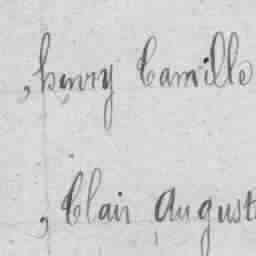 , henry Camille
, Clair August